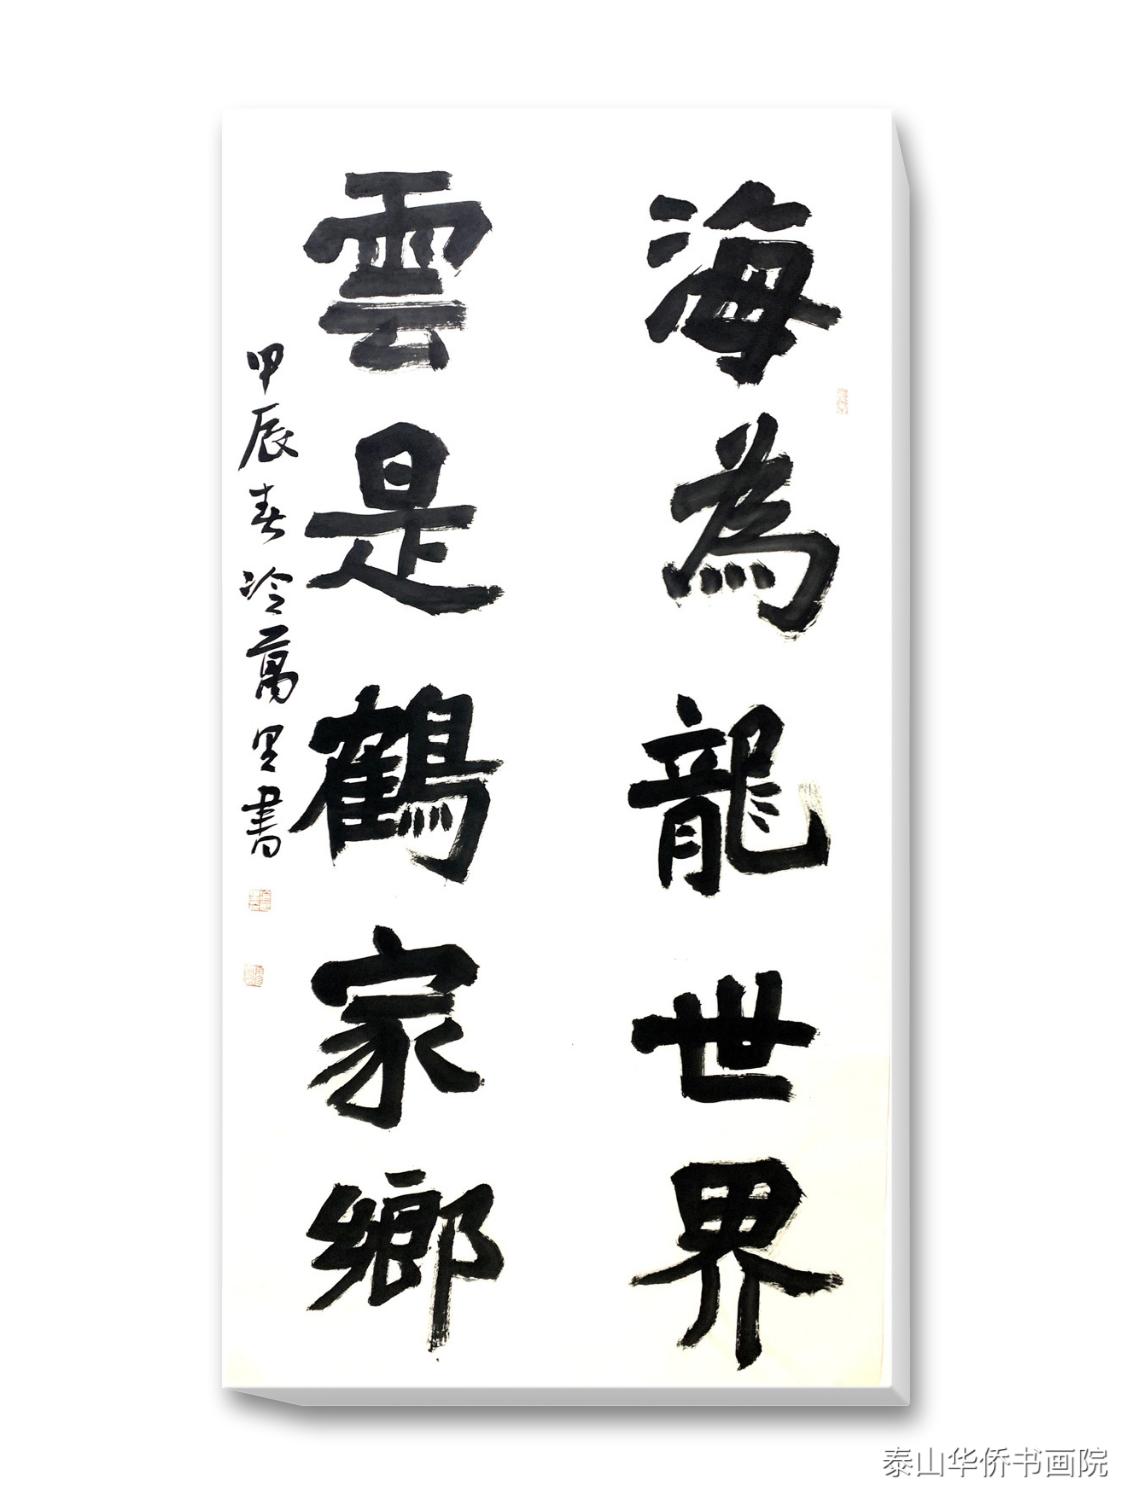 海為龍世界
雲是鶴家鄉
甲辰春冷萬里書
泰山华侨书画院